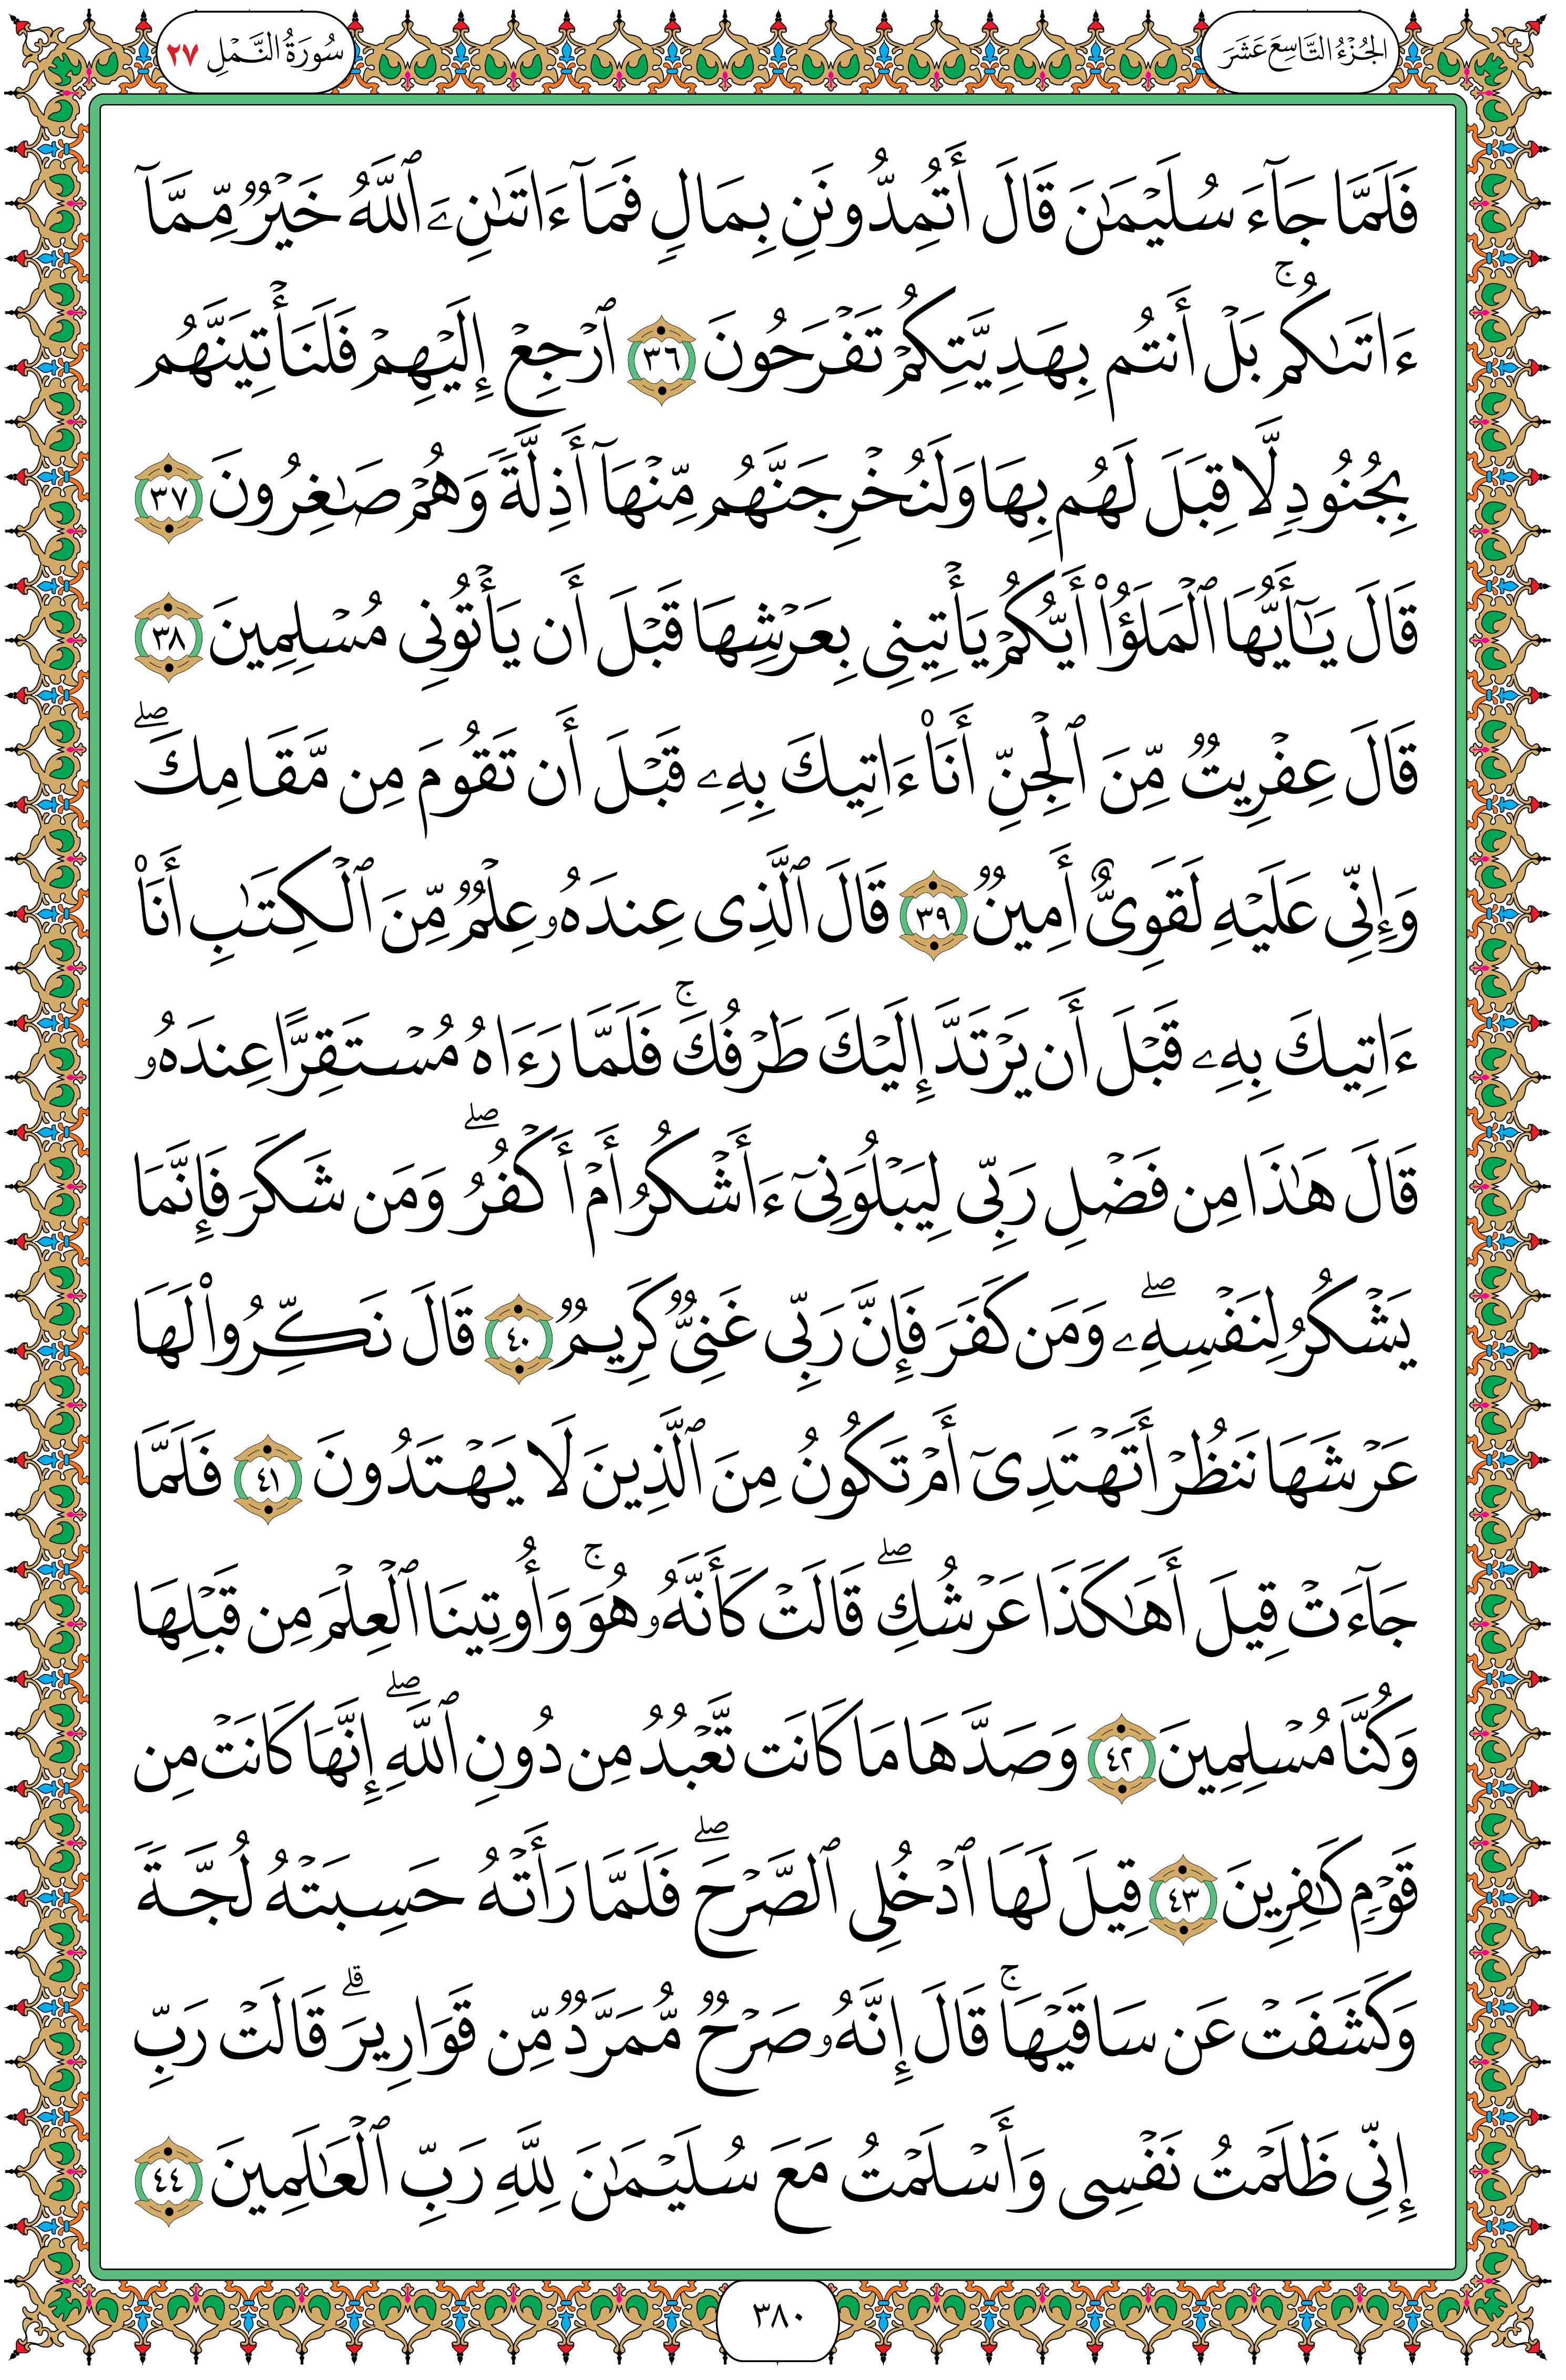 الجُزْءُ التَّاسِعَ عَشَرَ
سُورَةُ النَّمْلِ ٢٧
فَلَمَّا جَآءَ سُلَيْمَـٰنَ قَالَ أَتُمِدُّونَنِ بِمَالٍ فَمَآ ءَاتَىٰنِۦَ ٱللَّهُ خَيْرٌ مِّمَّآ
ءَاتَىٰكُمۚ بَلْ أَنتُم بِهَدِيَّتِكُمْ تَفْرَحُونَ ٣٦ ٱرْجِعْ إِلَيْهِمْ فَلَنَأْتِيَنَّهُم
بِجُنُودٍ لَّا قِبَلَ لَهُم بِهَا وَلَنُخْرِجَنَّهُم مِّنْهَآ أَذِلَّةً وَهُمْ صَـٰغِرُونَ ٣٧
قَالَ يَـٰٓأَيُّهَا ٱلْمَلَؤُا۟ أَيُّكُمْ يَأْتِينِى بِعَرْشِهَا قَبْلَ أَن يَأْتُونِى مُسْلِمِينَ ٣٨
قَالَ عِفْرِيتٌ مِّنَ ٱلْجِنِّ أَنَا۠ ءَاتِيكَ بِهِۦ قَبْلَ أَن تَقُومَ مِن مَّقَامِكَۖ
وَإِنِّى عَلَيْهِ لَقَوِىٌّ أَمِينٌ ٣٩ قَالَ ٱلَّذِى عِندَهُۥ عِلْمٌ مِّنَ ٱلْكِتَـٰبِ أَنَا۠
ءَاتِيكَ بِهِۦ قَبْلَ أَن يَرْتَدَّ إِلَيْكَ طَرْفُكَۚ فَلَمَّا رَءَاهُ مُسْتَقِرًّا عِندَهُۥ
قَالَ هَـٰذَا مِن فَضْلِ رَبِّى لِيَبْلُوَنِىٓ ءَأَشْكُرُ أَمْ أَكْفُرُۖ وَمَن شَكَرَ فَإِنَّمَا
يَشْكُرُ لِنَفْسِهِۦۖ وَمَن كَفَرَ فَإِنَّ رَبِّى غَنِىٌّ كَرِيمٌ ٤٠ قَالَ نَكِّرُوا۟ لَهَا
عَرْشَهَا نَنظُرْ أَتَهْتَدِىٓ أَمْ تَكُونُ مِنَ ٱلَّذِينَ لَا يَهْتَدُونَ ٤١ فَلَمَّا
جَآءَتْ قِيلَ أَهَـٰكَذَا عَرْشُكِۖ قَالَتْ كَأَنَّهُۥ هُوَۚ وَأُوتِينَا ٱلْعِلْمَ مِن قَبْلِهَا
وَكُنَّا مُسْلِمِينَ ٤٢ وَصَدَّهَا مَا كَانَت تَّعْبُدُ مِن دُونِ ٱللَّهِۖ إِنَّهَا كَانَتْ مِن
قَوْمٍ كَـٰفِرِينَ ٤٣ قِيلَ لَهَا ٱدْخُلِى ٱلصَّرْحَۖ فَلَمَّا رَأَتْهُ حَسِبَتْهُ لُجَّةً
وَكَشَفَتْ عَن سَاقَيْهَاۚ قَالَ إِنَّهُۥ صَرْحٌ مُّمَرَّدٌ مِّن قَوَارِيرَۗ قَالَتْ رَبِّ
إِنِّى ظَلَمْتُ نَفْسِى وَأَسْلَمْتُ مَعَ سُلَيْمَـٰنَ لِلَّهِ رَبِّ ٱلْعَـٰلَمِينَ ٤٤
٣٨٠